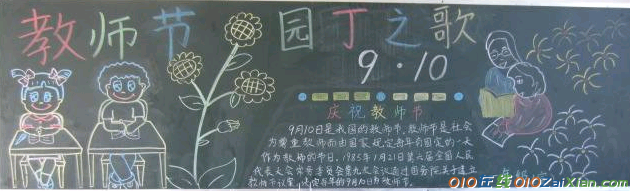 教师节 园丁之歌
9·10
庆祝教师节
9月10日是我国的教师节,教师节是社会
为尊重教师而由国家规定每年有固定的一天
作为教师的节日。1985年1月21日第六届全国人民
代表大会常务委员会第九次会议通过国务院关于建立
教师节议案,决定每年的9月10日为教师节。
010在线 010ZaiXian.com